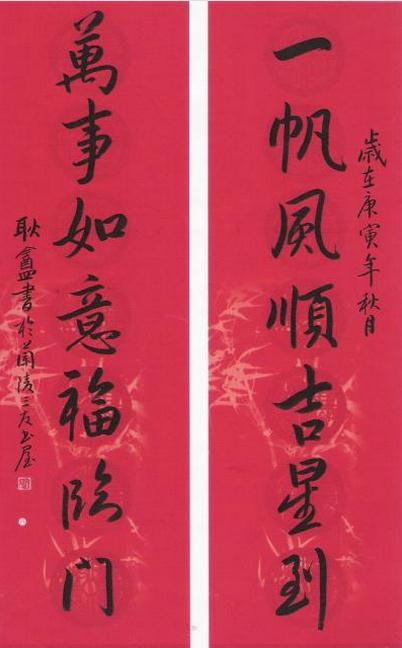 歲在庚寅年秋月
一帆風順吉星到
萬事如意福臨门
耿鑫書於蘭陵三友書屋